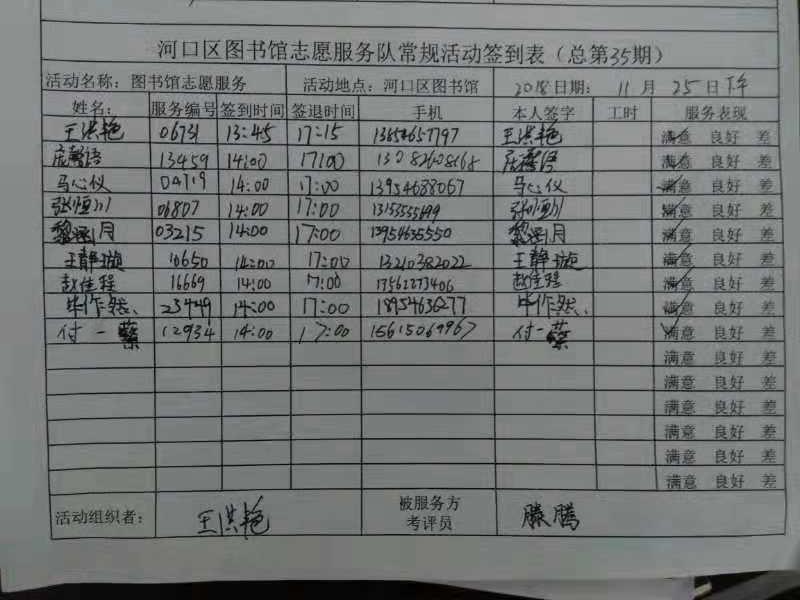 河口区图书馆志愿服务队常规活动签到表（总第35期）
活动名称：图书馆志愿服务 活动地点：河口区图书馆 2018日期： 11月 25日下午
姓名： 服务编号 签到时间 签退时间 手机 本人签字 工时 服务表现
王洪艳 06731 13:45 17:15 13854657797 王洪艳 满意 良好 差
13459 14:00 17:00 满意 良好 差
马心仪 04719 14:00 17:00 13954688067 马心仪 满意 良好 差
张恒川 06807 14:00 17:00 张恒川 满意 良好 差
03215 14:00 17:00 满意 良好 差
王静璇 10650 14:00 17:00 13210382022 王静璇 满意 良好 差
赵佳程 16669 14:00 17:00 17562273406 赵佳程 满意 良好 差
毕作然 23449 14:00 17:00 18954636277 毕作然 满意 良好 差
付一蔡 12934 14:00 17:00 15615069967 付一蔡 满意 良好 差
满意 良好 差
满意 良好 差
满意 良好 差
满意 良好 差
满意 良好 差
满意 良好 差
活动组织者： 王洪艳 被服务方 滕腾
考评员